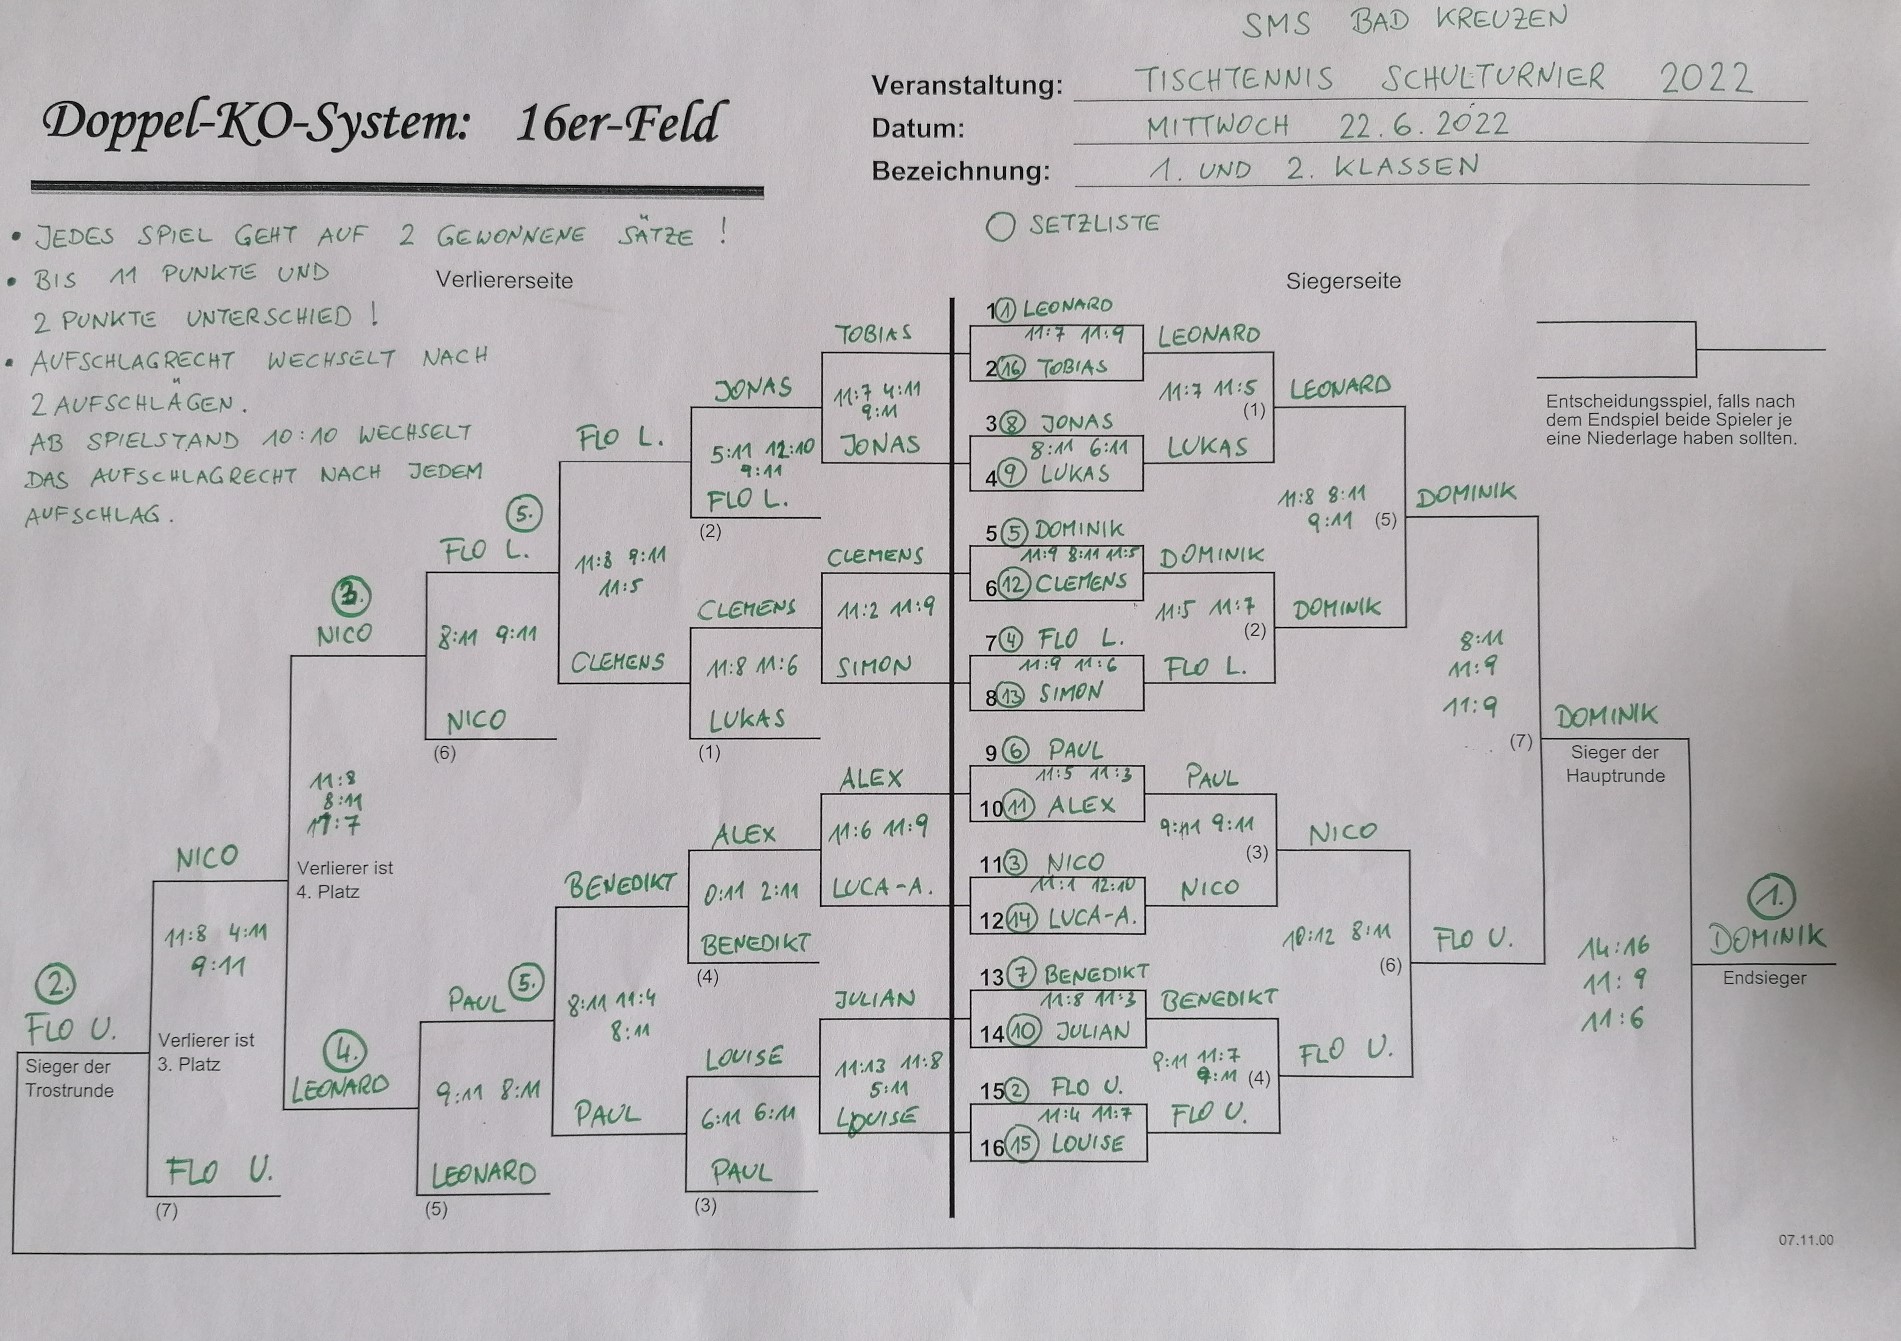 SMS BAD KREUZEN
Veranstaltung: TISCHTENNIS SCHULTURNIER 2022
Datum: MITTWOCH 22.6.2022
Bezeichnung: 1. UND 2. KLASSEN
Doppel-KO-System: 16er-Feld
• JEDES SPIEL GEHT AUF 2 GEWONNENE SÄTZE !
• BIS 11 PUNKTE UND
2 PUNKTE UNTERSCHIED !
• AUFSCHLAGRECHT WECHSELT NACH
2 AUFSCHLÄGEN.
AB SPIELSTAND 10:10 WECHSELT
DAS AUFSCHLAGRECHT NACH JEDEM
AUFSCHLAG.
SETZLISTE
Verliererseite
Siegerseite
2.
FLO U.
Sieger der
Trostrunde
NICO
11:8 4:11
9:11
Verlierer ist
3. Platz
FLO U.
(7)
3.
NICO
11:8
8:11
11:7
Verlierer ist
4. Platz
4.
LEONARD
5.
FLO L.
8:11 9:11
NICO
(6)
PAUL 5.
9:11 8:11
LEONARD
(5)
FLO L.
11:8 9:11
11:5
CLEMENS
BENEDIKT
8:11 11:4
8:11
PAUL
JONAS
5:11 12:10
9:11
FLO L.
(2)
CLEMENS
11:8 11:6
LUKAS
(1)
ALEX
0:11 2:11
BENEDIKT
(4)
LOUISE
6:11 6:11
PAUL
(3)
TOBIAS
11:7 4:11
9:11
JONAS
CLEMENS
11:2 11:9
SIMON
ALEX
11:6 11:9
LUCA-A.
JULIAN
11:13 11:8
5:11
LOUISE
1 1 LEONARD
11:7 11:9
2 16 TOBIAS
3 8 JONAS
8:11 6:11
4 9 LUKAS
5 5 DOMINIK
11:9 8:11 11:5
6 12 CLEMENS
7 4 FLO L.
11:9 11:6
8 13 SIMON
9 6 PAUL
11:5 11:3
10 11 ALEX
11 3 NICO
11:1 12:10
12 14 LUCA-A.
13 7 BENEDIKT
11:8 11:3
14 10 JULIAN
15 2 FLO U.
11:4 11:7
16 15 LOUISE
LEONARD
11:7 11:5
(1)
LUKAS
DOMINIK
11:5 11:7
(2)
FLO L.
PAUL
9:11 9:11
(3)
NICO
BENEDIKT
9:11 11:7
9:11 (4)
FLO U.
LEONARD
11:8 8:11
9:11 (5)
DOMINIK
NICO
10:12 8:11
(6)
FLO U.
DOMINIK
8:11
11:9
11:9
(7)
FLO U.
DOMINIK
Sieger der
Hauptrunde
14:16
11:9
11:6
1.
DOMINIK
Endsieger
Entscheidungsspiel, falls nach
dem Endspiel beide Spieler je
eine Niederlage haben sollten.
07.11.00